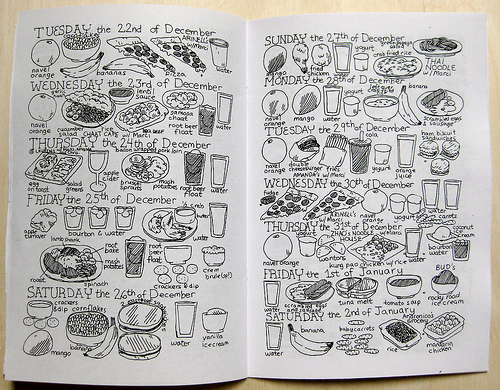 TUESDAY the 22nd of December
ARINELL'S
w/ Marci
navel
orange
bananas
pizza
water
WEDNESDAY the 23rd of December
lentil
sauce
samosa
chaat
navel
orange
cucumber
salad
CHAAT CAFE w/ Marci
root beer
float
water
THURSDAY the 24th of December
egg
on toast
salad
greens
cider
sprouts
mash
potatoes
root beer
float
water
FRIDAY the 25th of December
crab
apple
turnover
bourbon & water
water
lamb
roast
spinach
mash
potatoes
root
beer
float
crackers
& dip
creme
brulee(!)
SATURDAY the 26th of December
crackers
& dip
cornflakes
mango
banana
water
vanilla
ice cream
SUNDAY the 27th of December
mango
fried
chicken
water
yogurt
papaya
salad
crab fried rice
THAI
NOODLE
w/ Marci
MONDAY the 28th of December
navel
orange
mango
water
yogurt
banana
scrambled eggs
& sausage
TUESDAY the 29th of December
navel
orange
double
cheeseburger
fries
AMANDA'S w/ Marci
cola
yogurt
orange
juice
ham biscuit
sandwiches
WEDNESDAY the 30th of December
ARINELL'S
w/ Marci
navel
orange
yogurt
water
THURSDAY the 31st of December
navel
orange
yogurt
THAI NOODLE
HOUSE
w/ Marci
wontons
kung pao chicken w/ rice
water
carrots
coconut
cream
bourbon
water
FRIDAY the 1st of January
water
scrambled eggs
and sausage
tuna melt
tomato soup
BUD'S
rocky road
ice cream
SATURDAY the 2nd of January
water
banana
baby carrots
Andronico's
grocery
rice
mandarin
chicken